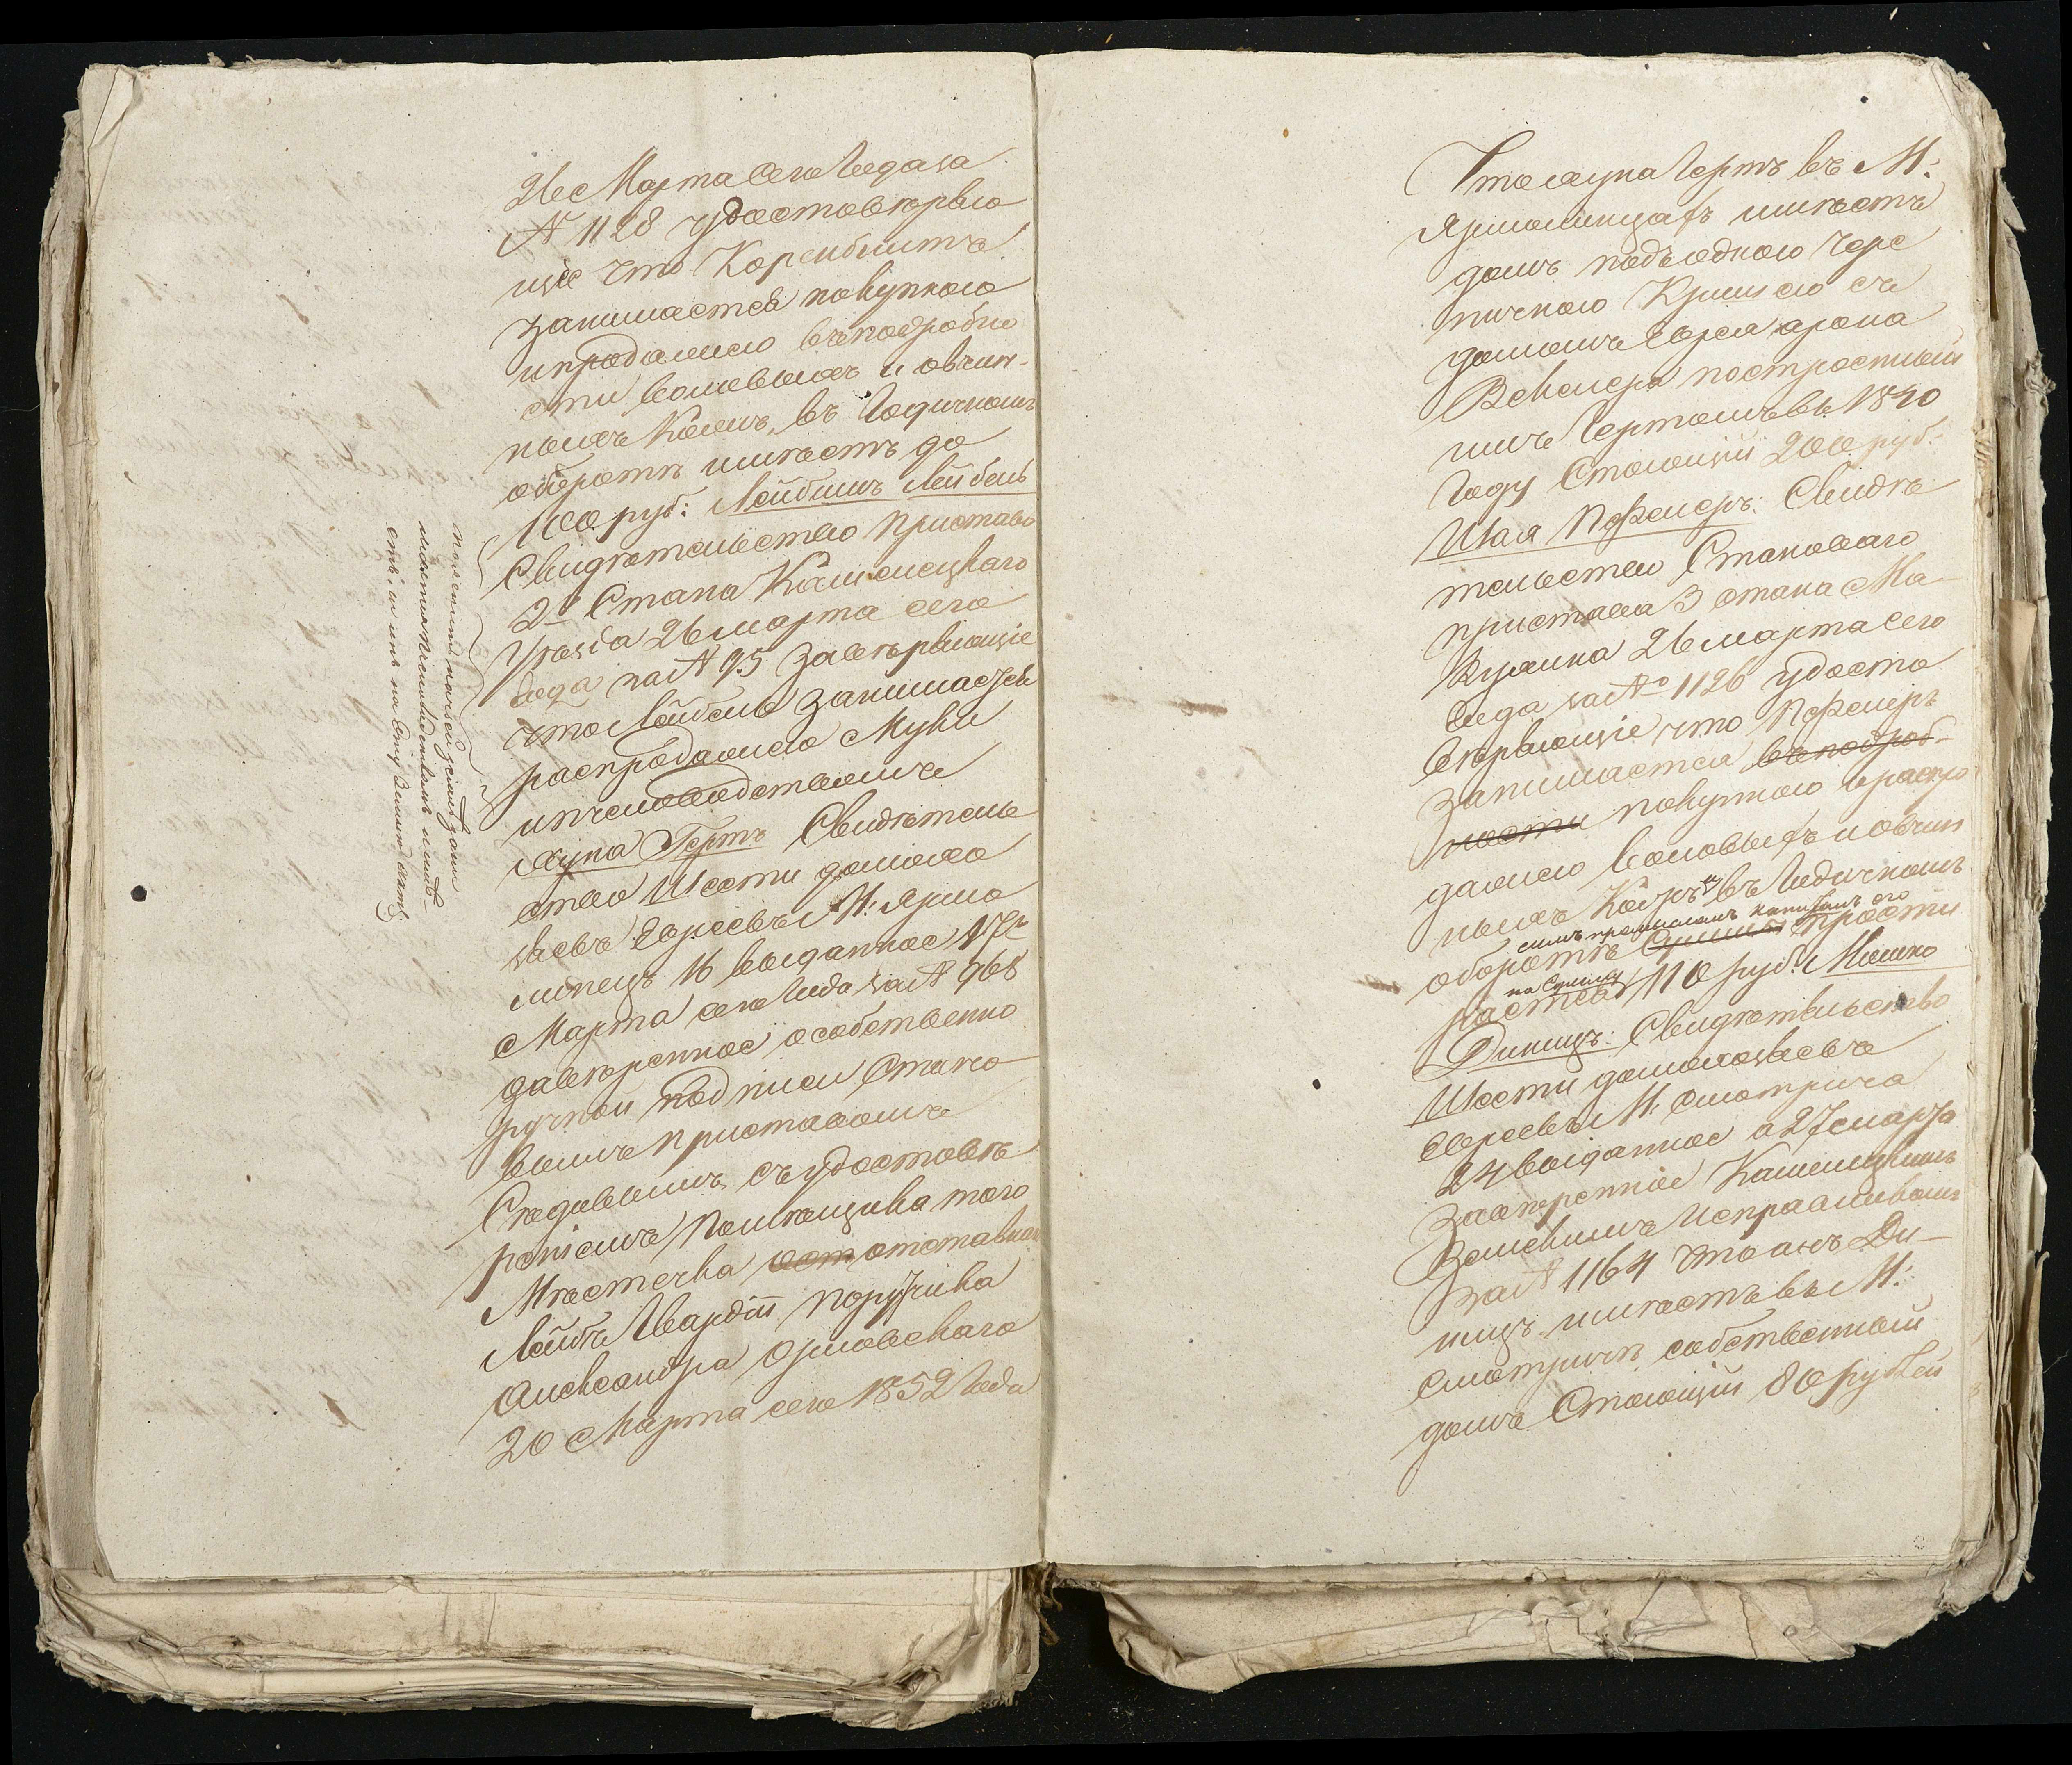 26 Марта сего года за
№ 1128 удостовѣряю
щіе что Коренблитъ
занимается покупкою
и продажею въ подробно
сти воловыхъ и овчин-
ныхъ кожъ, въ годичномъ
оборотѣ имѣетъ до
100 руб: Лейбишъ Лейбель
Свидѣтельство Пристава
2го Стана Каменецкаго
Уѣзда 26 марта сего
года за № 95 завѣряющіе
что Лейбель занимается
распродажею муки
и пчеловодствомъ
Хуна Гертъ Свидѣтель
ство Шести домохо
зяевъ евреевъ М: Ярмо
линецъ 16 выданное 17го
Марта сего года за № 968
завѣренное о собственно
ручной подписи Стано
вымъ приставомъ
съ удостовѣ
реніемъ помѣщика того
Мѣстечка отставнаго
Лейбъ Гвардіи поручика
Александра Орловскаго
20 Марта сего 1852 года
что Хуна Гертъ въ М:
Ярмолинцахъ имѣетъ
домъ подъ одною чере
пичною крышею съ
домомъ Еврея Арона
Векслера построенный
имъ Гертомъ въ 1840
году стоющій 200 руб:
Шая Пефелеръ: Свидѣ
тельство Становаго
пристава 3 стана Ма
26 марта сего
года за № 1126 удосто
вѣряющіе что Пефелеръ
занимается въ подроб-
ности покупкою и распро
дажею воловыхъ и овчин
ныхъ кожъ въ годичномъ
симъ промысломъ капиталъ его
оборотѣ Сумма прости
на сумму
рается 110 руб: Мошко
Диницъ: Свидѣтельство
Шести домохозяевъ
евреевъ М: Смотрича
24 выданное а 27 марта
завѣренное Каменецкимъ
Земскимъ Исправникомъ
за № 1164 что онъ Ди-
ницъ имѣетъ въ М:
Смотричѣ собственный
домъ стоющій 80 рублей